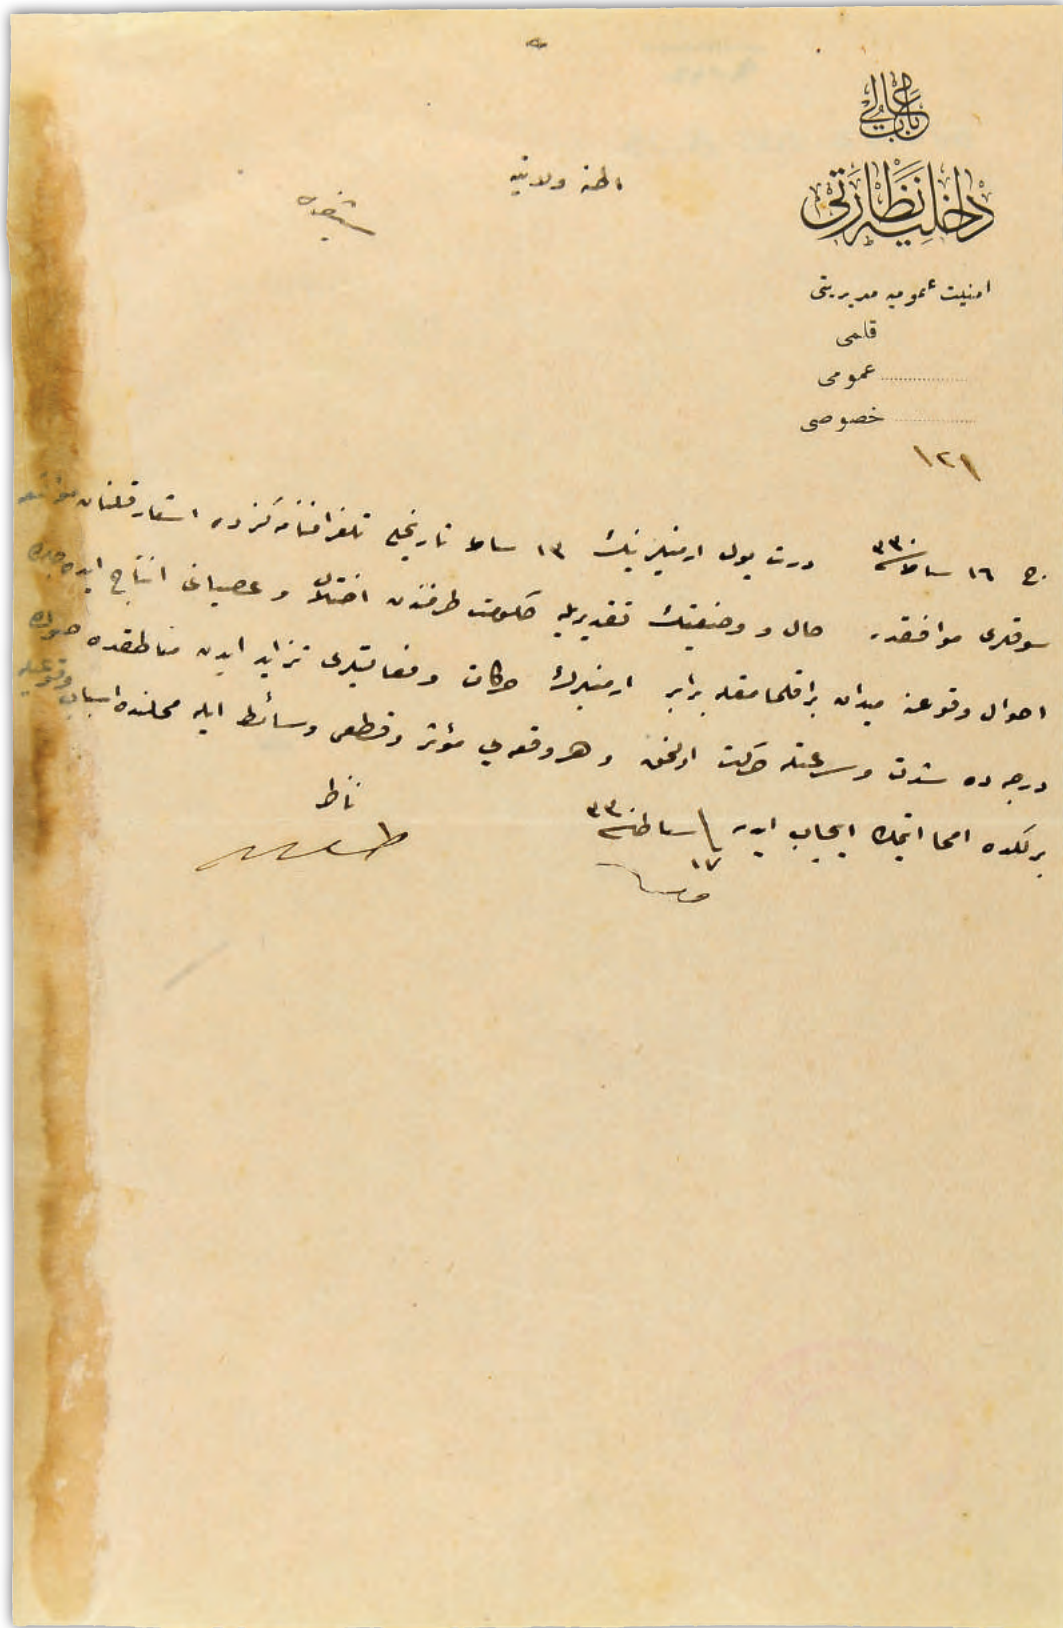 باب عالی
داخلیه نظارتی
امنیت عمومیه مدیریتی
قلمی
عمومی
خصوصی
١٢١
اطنه ولایتنه
شفره
ج ١٦ شباط ٣٣٠ درت یول ارمنیلرینك ١٣ شباط تاریخلی تلغرافنامه‌كزده اشعار قلنان
سوقلری موافقدر حال و وضعیتك تقدیریله حكومت طرفندن اختلال و عصیانی انتاج ایده‌جك
احوال وقوعنه میدان براقلمامقله برابر ارمنیلرك حركات و فعالیتلری تزاید ایدن مناطقده صوك
درجه‌ده شدت و سرعتله حركت اولنمق و هر وقعه‌یی مؤثر و قطعی وسائط ایله محلنده اسباب وقوعیله
برلكده امحا ایتمك ایجاب ایدر شباط سنه ٣٣٠
١٧
ناظر
طلعت